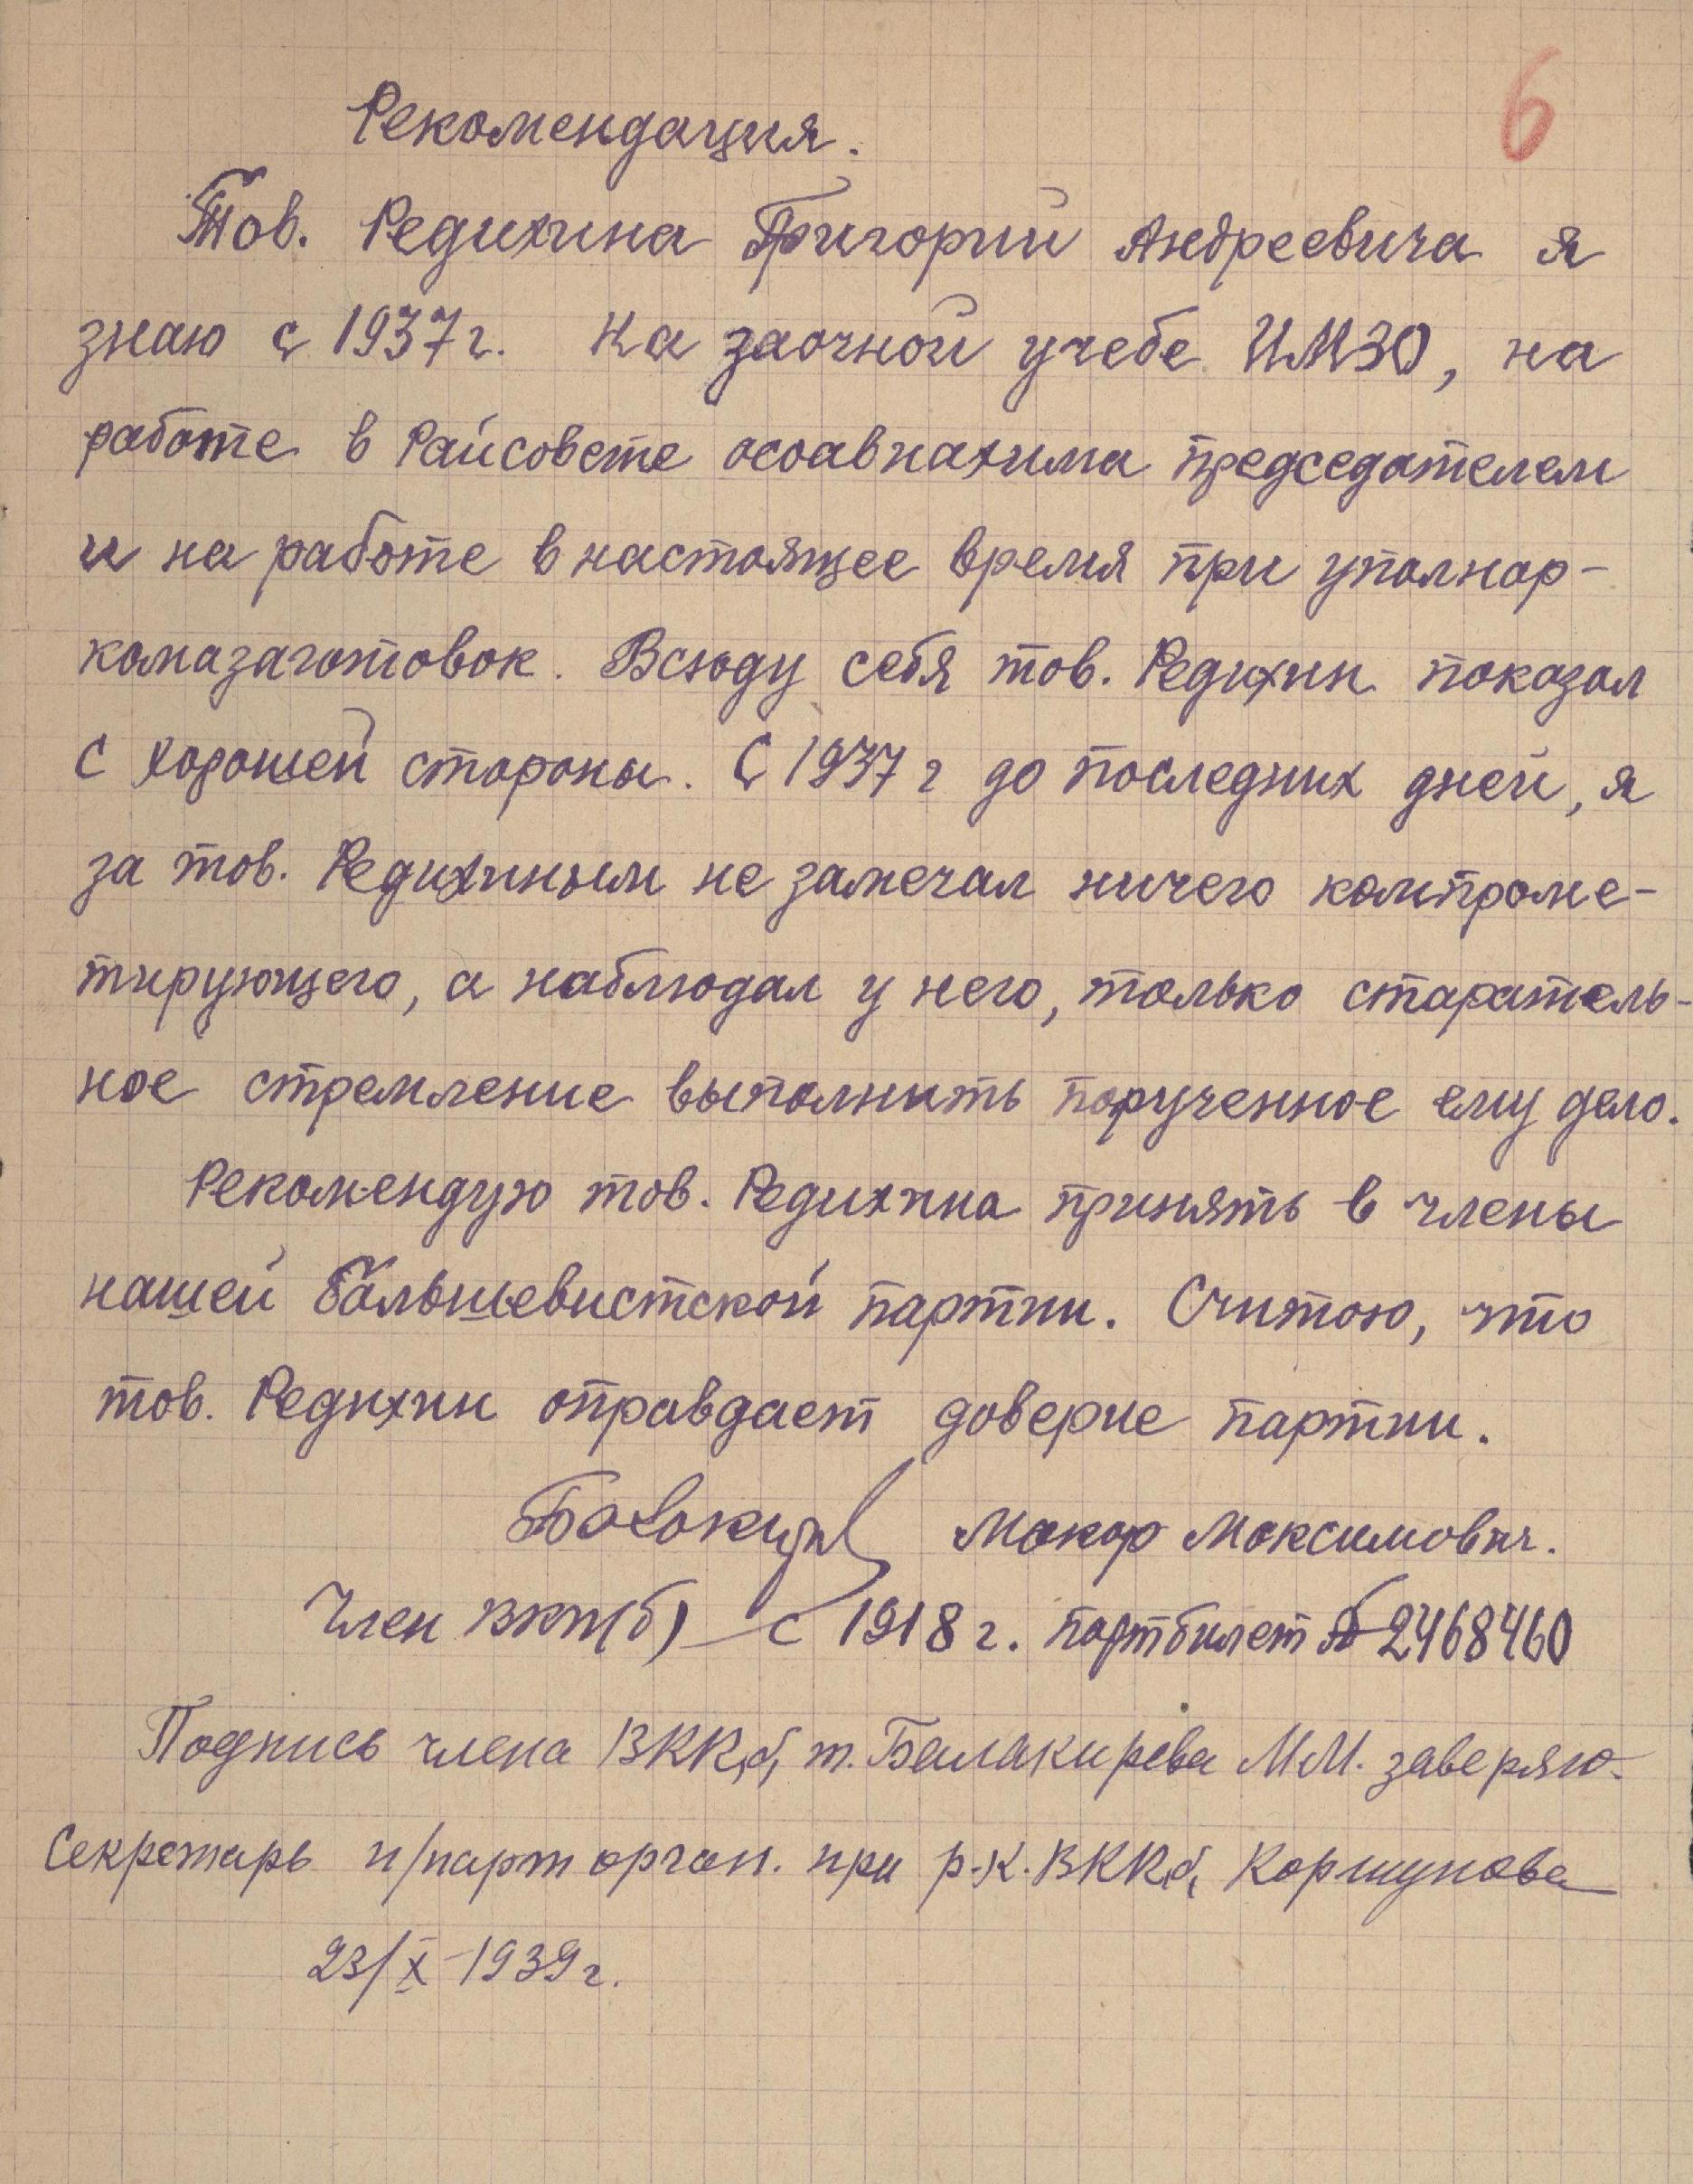 6
Рекомендация.
Тов. Редихина Григорий Андреевича я
знаю с 1937г. На заочной учебе ИМЗО, на
работе в Райсовете осоавиахима председателем
и на работе в настоящее время при уполнар-
комазаготовок. Всюду себя тов. Редихин показал
с хорошей стороны. С 1937 г до последних дней, я
за тов. Редихиным не замечал ничего компроме-
тирующего, а наблюдал у него, только старатель-
ное стремление выполнить порученное ему дело.
Рекомендую тов. Редихина принять в члены
нашей Большевистской партии. Считою, что
тов. Редихин оправдает доверие партии.
Макар Максимович.
Член ВКП(б) с 1918 г. партбилет № 2468460
Подпись члена ВКПб, т. Балакирева М.М. заверяю.
Секретарь п/парт орган. при р.к. ВКПб, Коршунова
23/X-1939г.